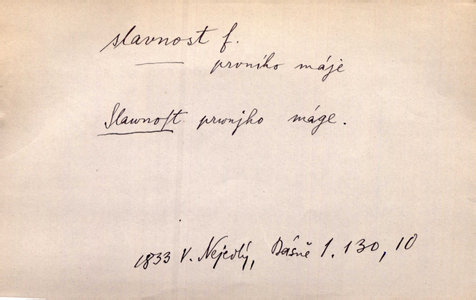 slavnost f.
prvního máje
Slawnoſt prwnjho máge.
1833 V. Nejedlý, Básně 1, 130, 10